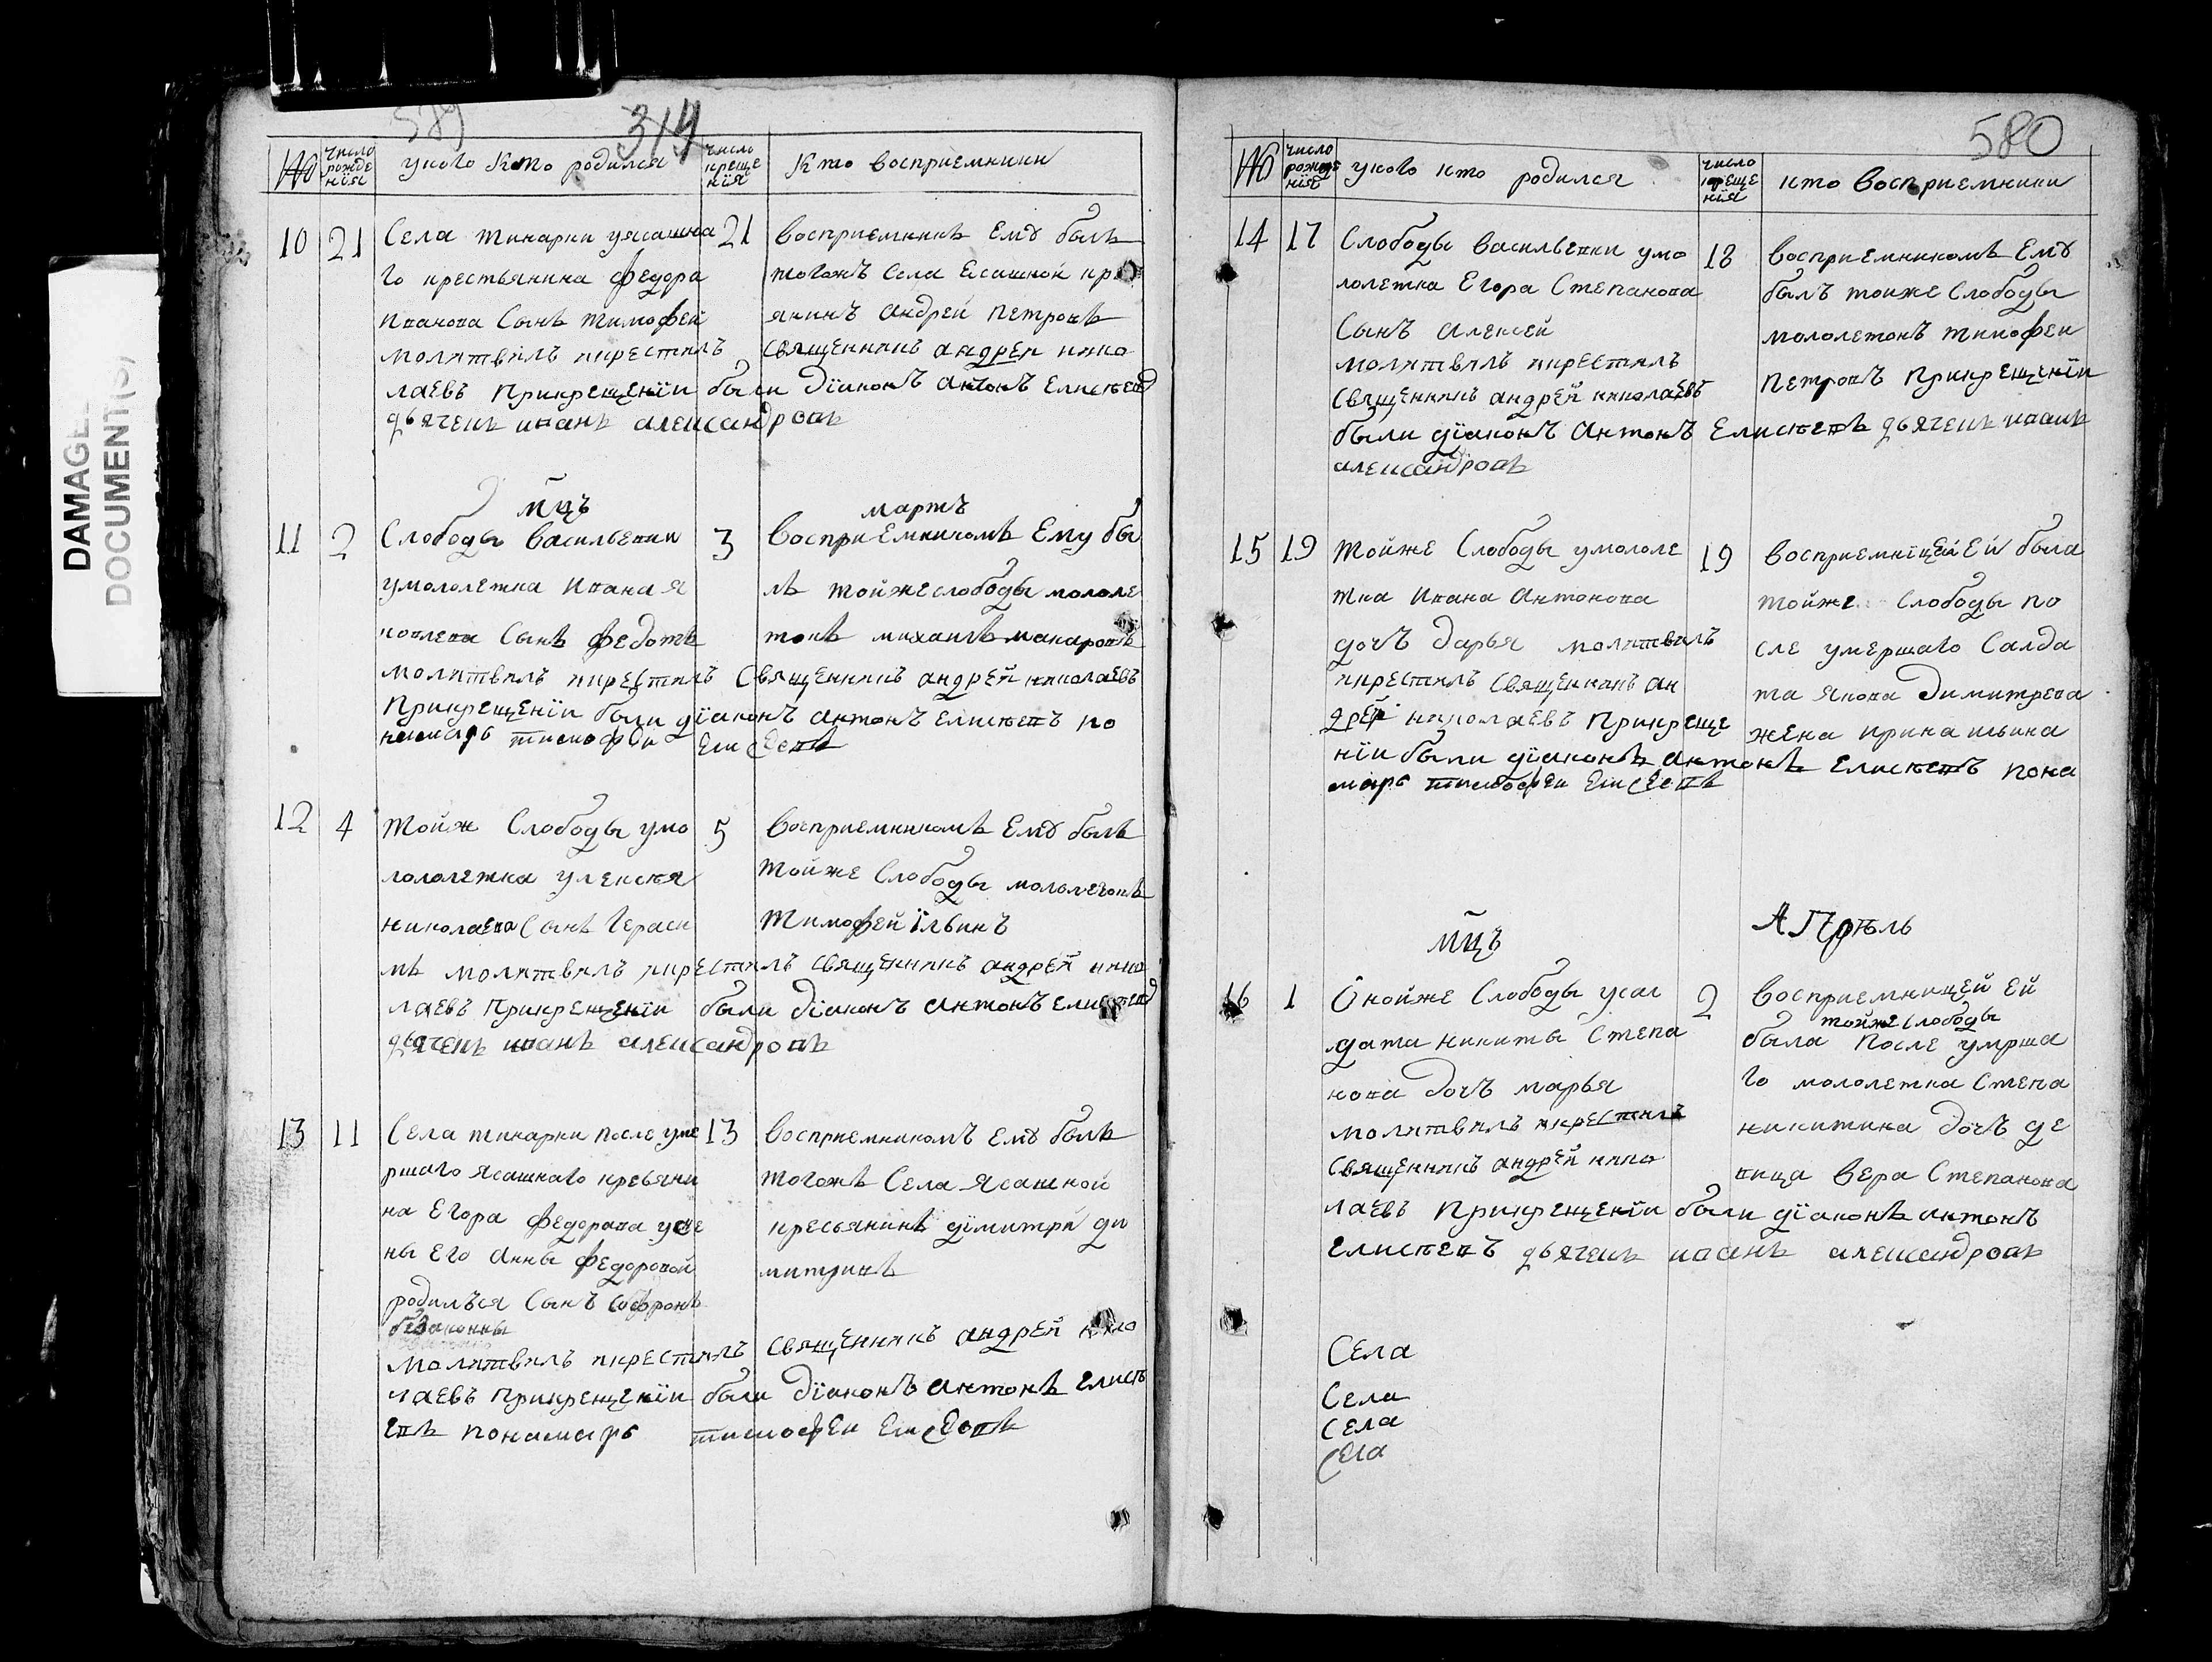 DAMAGE
DOCUMENT(S)
589
314
№
число рожде нія
у кого Кто родился
число креще нія
Кто восприемники
10
21
Села тинарки уясашна
го крестьянина федора
Иванова Сынъ тимофей
молитвилъ икрестилъ
21
восприемникъ Ему былъ
тогожъ Села Есашной
янинъ андрей петровъ
Священникъ андреи нико
лаевъ Прикрещеніи были Діаконъ антонъ Елисѣев
дьячекъ иванъ александровъ
мцъ
мартъ
11
2
Слободы васильевки
умололетка Ивана я
ковлева Сынъ федотъ
3
восприЕмникомъ Ему бы
лъ тойжеслободы мололе
токъ михаилъ макаровъ
молитвилъ икрестилъ Священникъ андрей николаевъ
Прикрещеніи были діаконъ антонъ елисѣевъ по
намарь тимофеи
12
4
тойж Слободы умо
лололетка уленсѣя
николаева Сынъ Гераси
5
восприемникомъ Ему былъ
тойже Слободы
Тимофей їльинъ
мъ молитвилъ икрестилъ священникъ андрей нико
лаевъ Прикрещеніи были Діаконъ антонъ
дьячекъ иванъ александровъ
13
11
Села тинарки после уме
ршаго ясашнаго кресьяни
на Егора федорова уже
ны Его анны федоровой
родилъся Сынъ Софронъ
безаконны
13
восприемникомъ Ему былъ
тогожъ Села Ясашной
кресьянинъ димитри ди
митривъ
молитвилъ икрестилъ священникъ андрей нико
лаевъ прикрещеніи были Діаконъ антонъ елисѣ
евъ понамарь тимофеи
580
№
число рожде нія
у кого кто родился
число креще нія
кто восприемники
14
17
Слободы васильевки умо
лолетка Егора Степанова
Сынъ алексей
молитвилъ икрестилъ
священникъ андрей николаевъ
18
восприемникомъ Ему
былъ тойже Слободы
мололетокъ тимофеи
петровъ Прикрещеніи
были діаконъ антонъ Елисѣевъ дьячекъ иванъ
александровъ
15
19
тойже Слободы умололе
тка Ивана антонова
дочъ Дарья молитвилъ
икрестилъ священникъ ан
дрей николаевъ Прикреще
19
восприемніцей Ей была
тойже Слободы по
сле умершаго Салда
та якова Димитрева
жена ирина ильина
ніи были діаконъ антонъ елисѣевъ пона
марь тимофеи
мцъ
Апрѣль
16
1
Онойже Слободы усал
дата никиты Степа
нова Дочъ марья
молитвилъ икрестилъ
священникъ андрей нико
2
восприемницей ей
тойже слободы
была после умрша
го мололетка степа
никитина дочъ де
вица вера Степанова
лаевъ Прикрещеніи были діаконъ антонъ
елисѣевъ дьячекъ иванъ александровъ
Села
Села
Села
Села